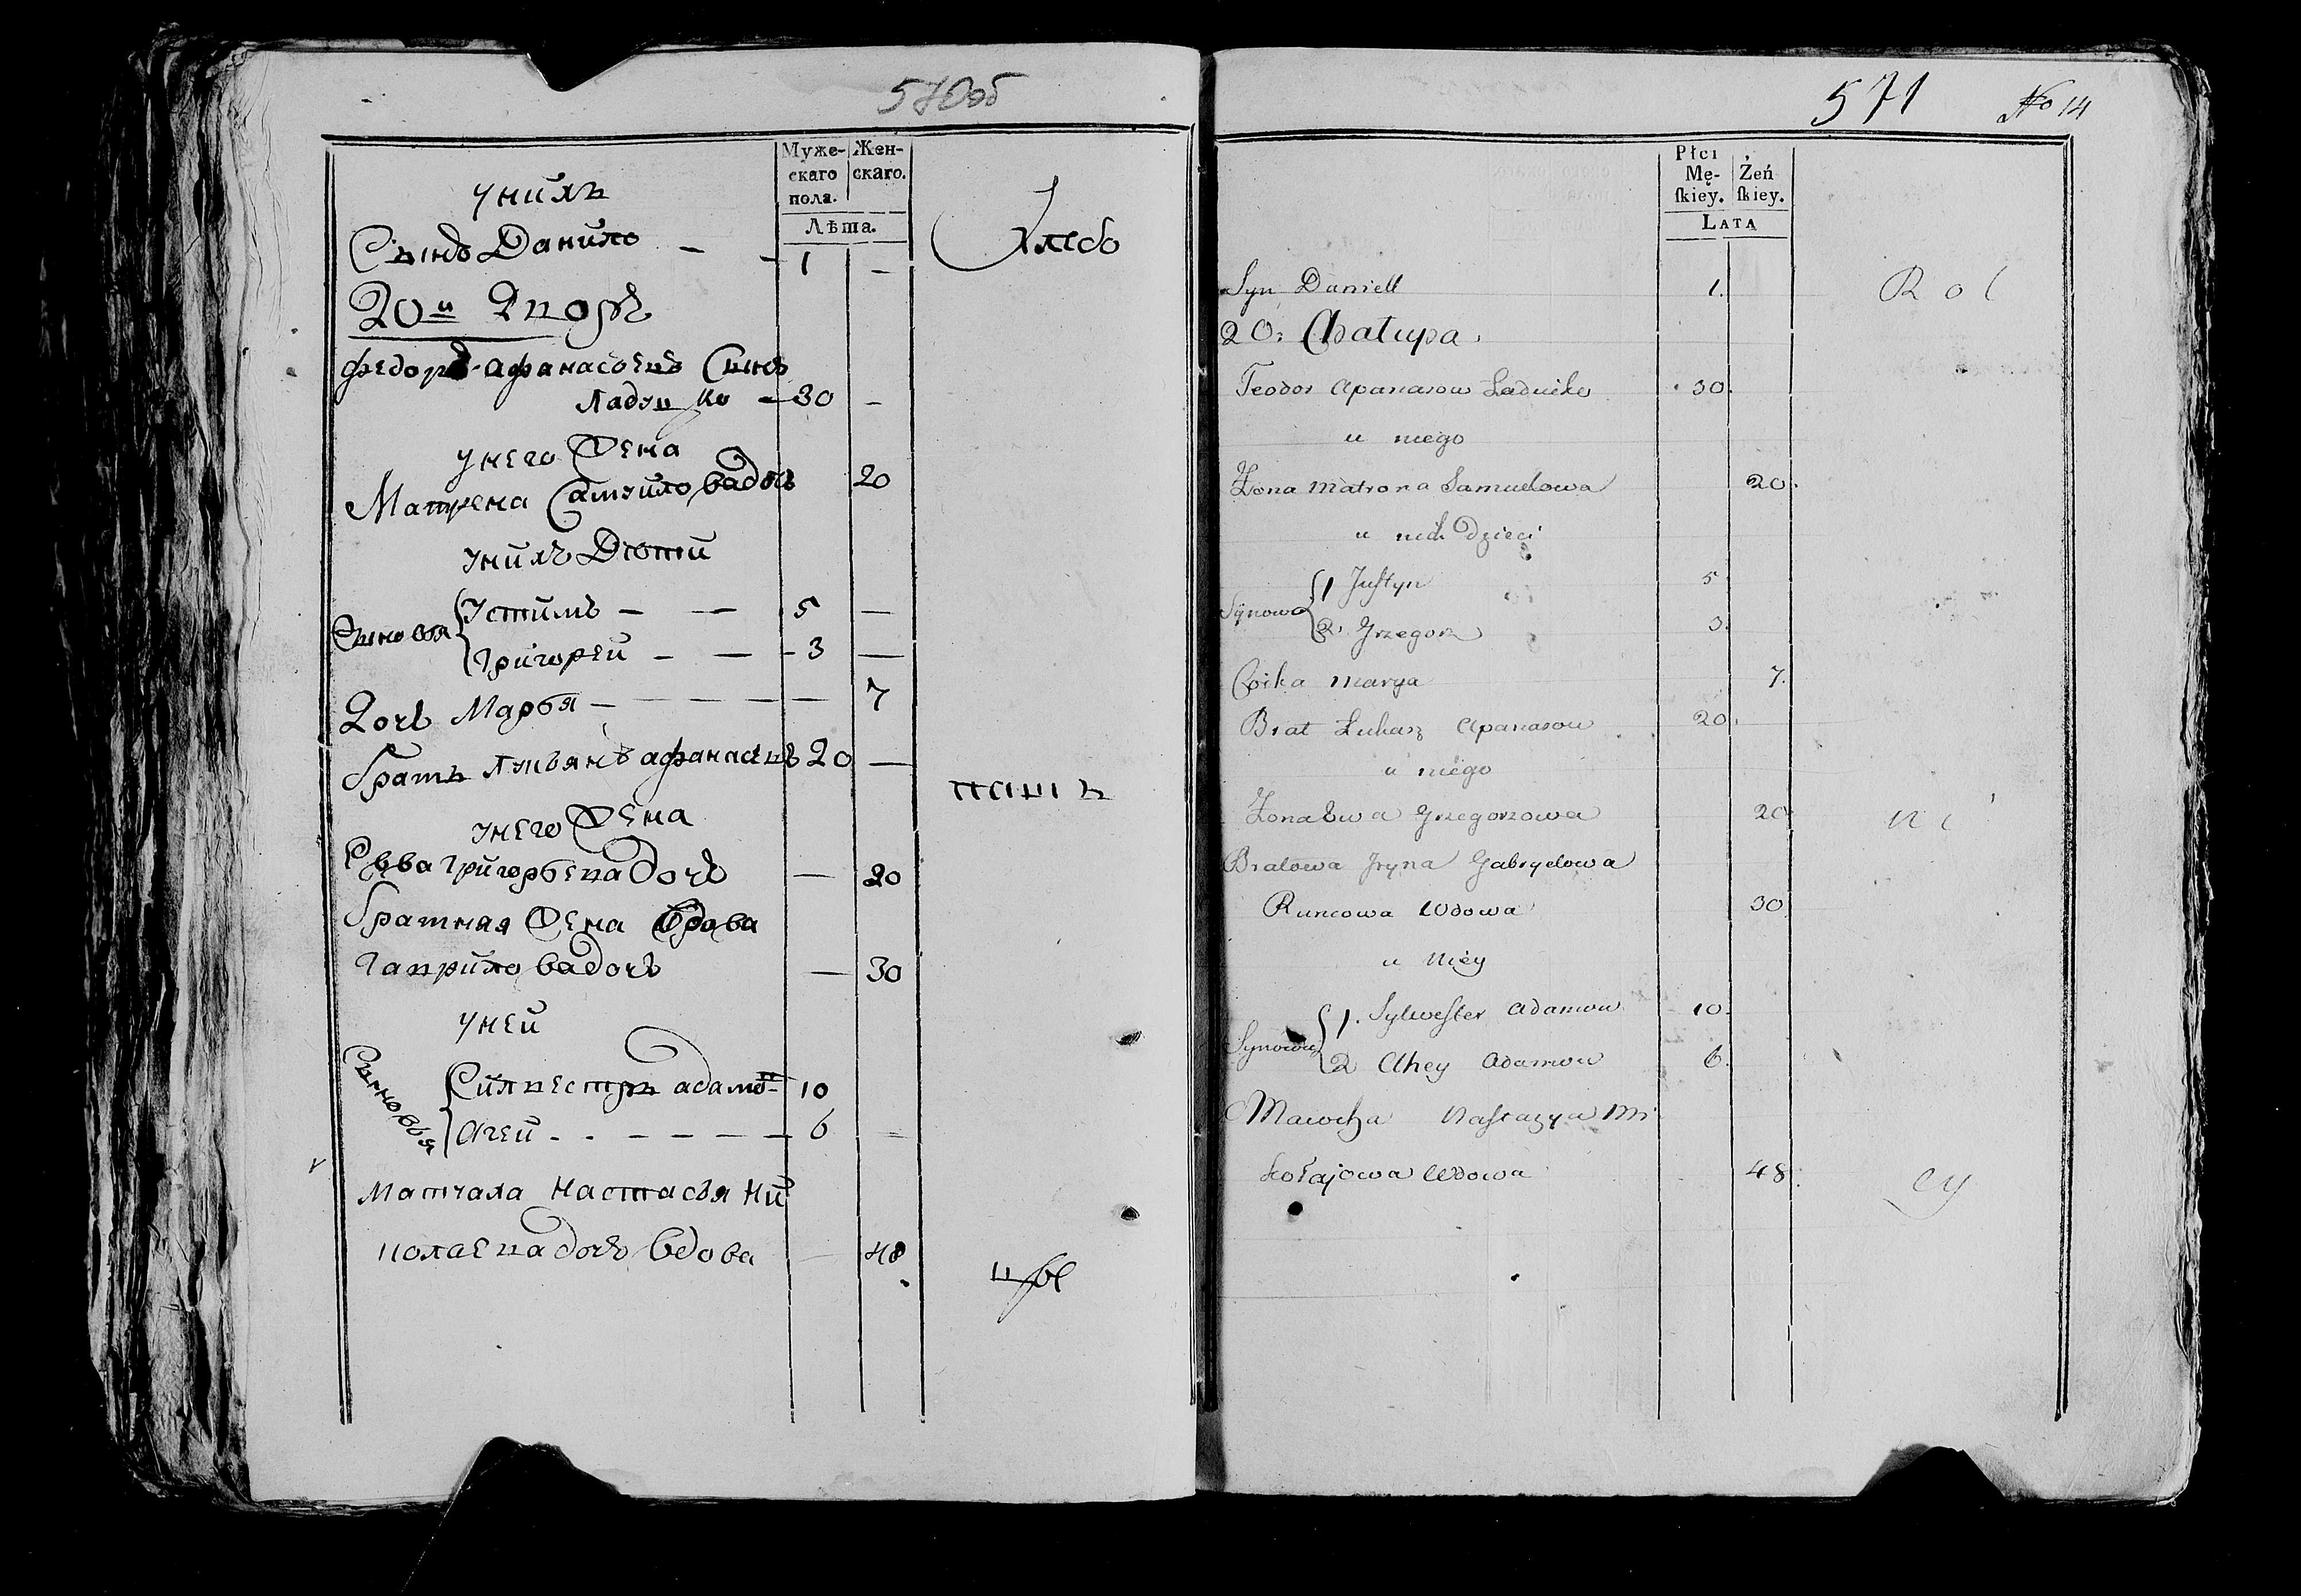 570об
Муже-
скаго
пола.
Жен-
скаго.
Лѣта.
Хлебо
унихъ
Сынъ Данило — — 1 —
20й Дворъ
Федоръ Афанасьевъ Сынъ
Ладутко — 30 —
унего Жена
Матрена Самуйлова дочь 20
унихъ Дѣти
Сыновья
Устинъ — — 5 —
Григорей — — 3 —
Дочь Марья — — — — — 7
Братъ Лукьянъ Афанасьевъ 20 —
пашц
унего Жена
Евва Григорьева дочь — 20
Братная Жена Вдова
Гаврилова дочь — 30
уней
Сыновья
Силвестръ Адамов 10
Агей - - — — — — 6 =
Матчала Настасья Ни
колаева дочь Вдова — 48
цы
571 No 14
Płci
Mę-
ſkiey.
Żeń
ſkiey.
LATA
Syn Daniell 1. Rol
20: Chałupa.
Teodor Apanasow Laducko 30.
u niego
Żona Matrona Samuelowa 20.
u nich Dzieci
Synowie
1 Juſtyn 5
2. Grzegorz 3.
Corka Marya 7.
Brat Łukasz Apanasow 20.
u niego
Żona Ewa Grzegorzowa 20 ni
Bratowa Jryna Gabryelowa
Runcowa Wdowa 30
u Niey
Synowie
1. Sylweſter Adamow 10.
2 Ahey Adamow 6.
Macocha Naſtazya Mi
kołajowa Wdowa 48. cy